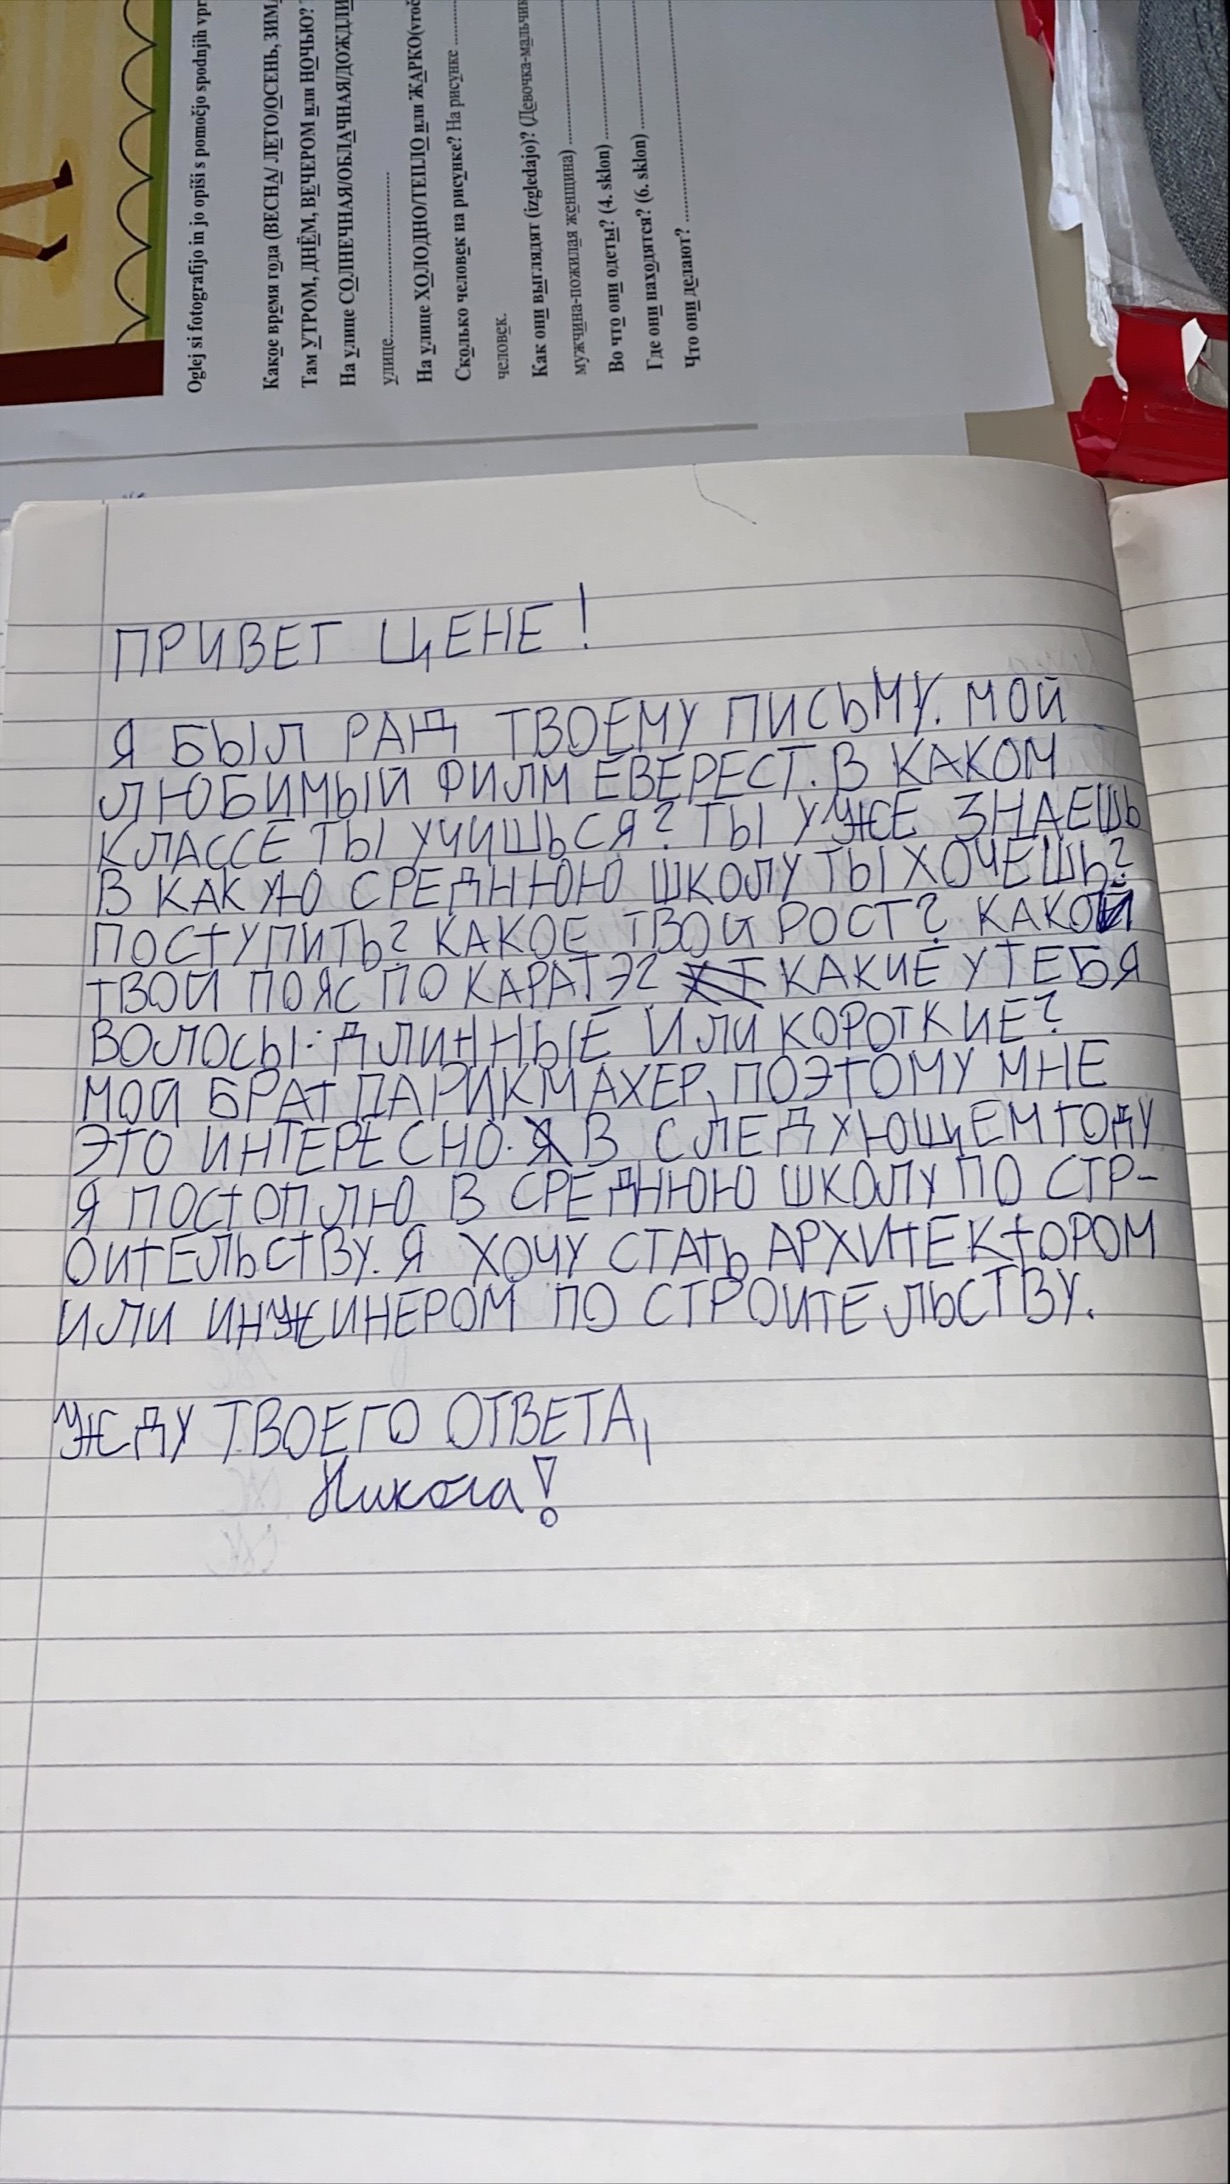 Oglej si fotografijo in jo opiši s pomočjo spodnjih
Какое время года (ВЕСНА/ ЛЕТО/ОСЕНЬ,
Там УТРОМ, ДНЁМ, ВЕЧЕРОМ или НОЧЬЮ?
На улице СОЛНЕЧНАЯ/ОБЛАЧНАЯ/
улице
На улице ХОЛОДНО/ТЕПЛО или ЖАРКО
Сколько человек на рисунке? На рисунке
человек.
Как они выглядят (izgledajo)? (Девочка-мальчик
мужчина-пожилая женщина)
Во что они одеты? (4. sklon)
Где они находятся? (6. sklon)
Что они делают?
ПРИВЕТ ЦЕНЕ!
Я БЫЛ РАД ТВОЕМУ ПИСЬМУ. МОЙ
ЛЮБИМЫЙ ФИЛМ ЕВЕРЕСТ. В КАКОМ
КЛАССЕ ТЫ УЧИШЬСЯ? ТЫ УЖЕ ЗНАЕШЬ
В КАКУЮ СРЕДНЮЮ ШКОЛУ ТЫ ХОЧЕШЬ?
ПОСТУПИТЬ? КАКОЕ ТВОЙ РОСТ? КАКОЙ
ТВОЙ ПОЯС ПО КАРАТЭ? КАКИЕ У ТЕБЯ
ВОЛОСЫ: ДЛИННЫЕ ИЛИ КОРОТКИЕ?
МОЙ БРАТ ПАРИКМАХЕР, ПОЭТОМУ МНЕ
ЭТО ИНТЕРЕСНО. В СЛЕДУЮЩЕМ ГОДУ
Я ПОСТОПЛЮ В СРЕДНЮЮ ШКОЛУ ПО СТР-
ОИТЕЛЬСТВУ. Я ХОЧУ СТАТЬ АРХИТЕКТОРОМ
ИЛИ ИНЖИНЕРОМ ПО СТРОИТЕЛЬСТВУ.
ЖДУ ТВОЕГО ОТВЕТА,
Никола!